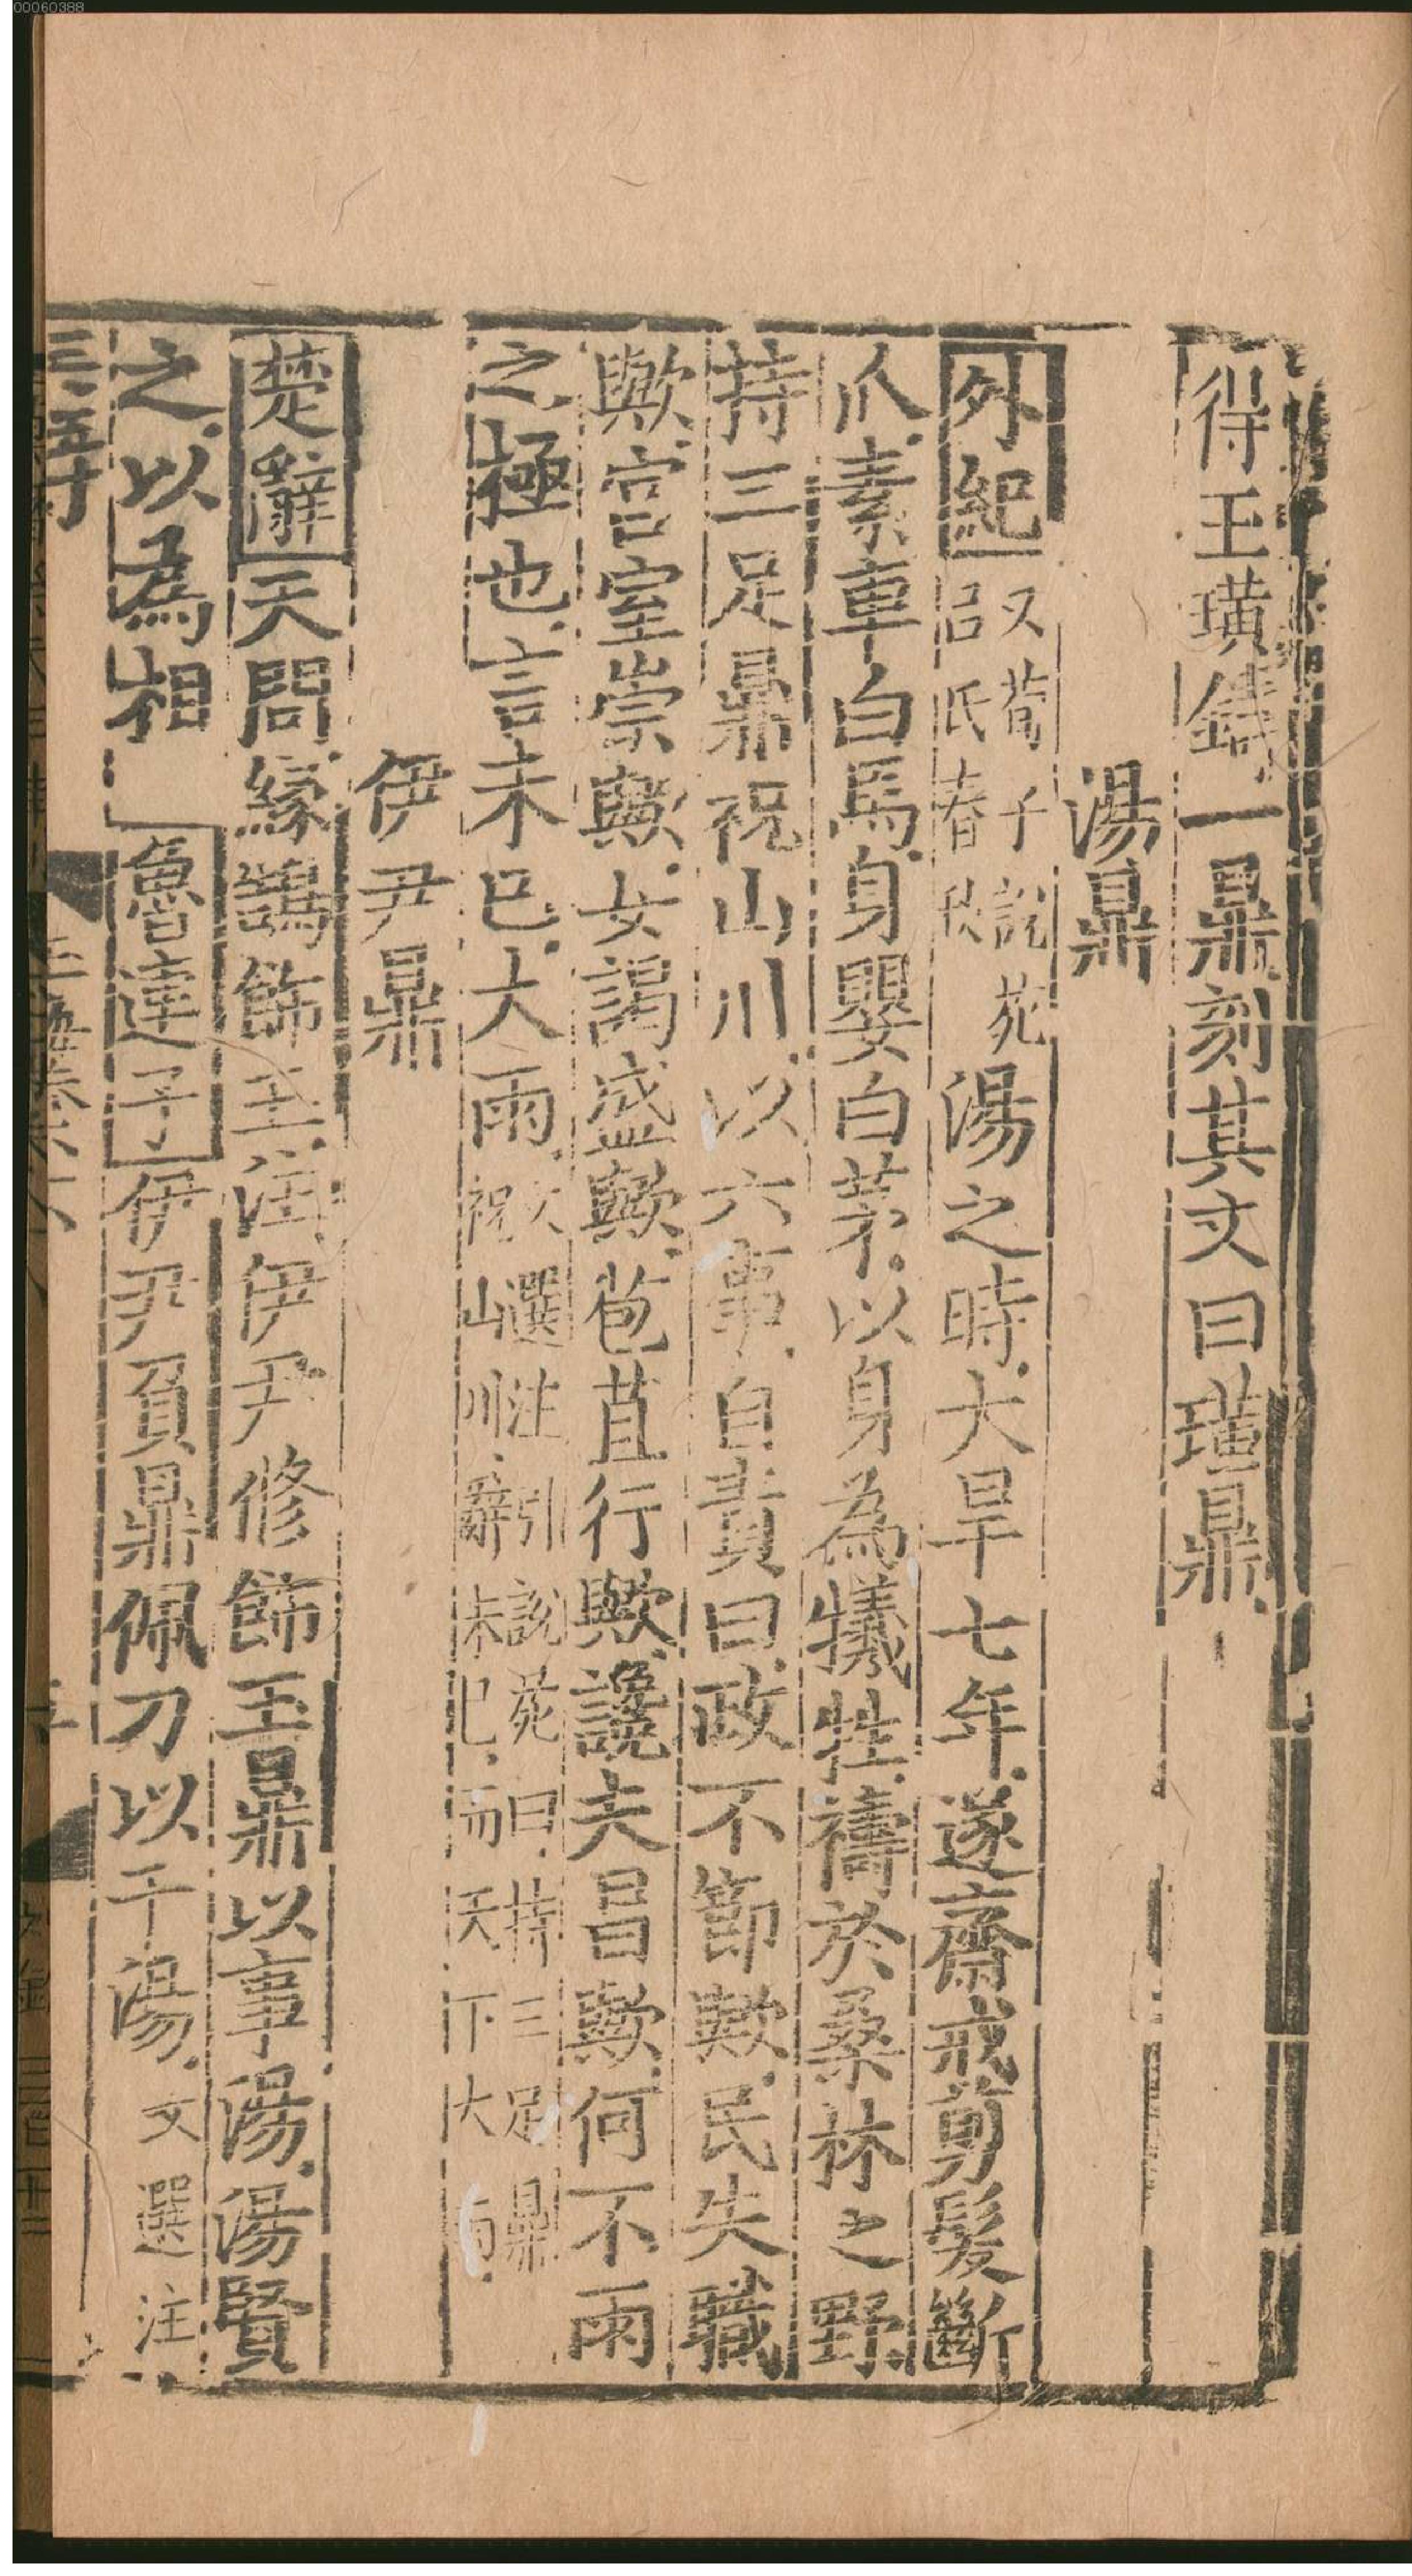 得玉璜鑄一鼎刻其文曰璜鼎
湯鼎
外紀又荀子說苑呂氏春秋湯之時大旱七年遂齋戒剪髮斷
爪素車白馬身嬰白茅以身為犧牲禱於桑林之野
持三足鼎祝山川以六事自責曰政不節歟民失職
歟宮室崇歟女謁盛歟苞苴行歟讒夫昌歟何不雨
之極也言未已大雨文選注引說苑曰持三足鼎祝山川辭未已而天下大雨
伊尹鼎
楚辭天問緣鵠飾玉注伊尹修飾玉鼎以事湯湯賢
之以為相魯連子伊尹負鼎佩刀以干湯文選注
三五十
00060388